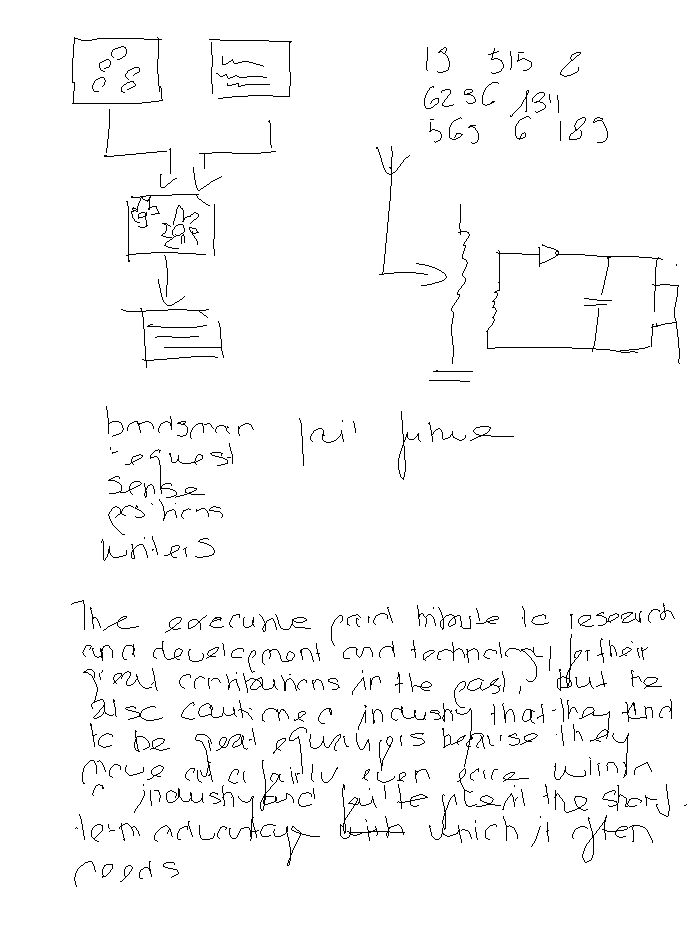 13 515 8
6236 134
569 6 189
bondsman fail future
request
sense
positions
writers
The executive paid tribute to research
and development and technology for their
great contributions in the past, but he
also cautioned industry that they tend
to be great equalizers because they
move at a fairly even pace within
a industry and fail to give it the short
term advantage with which it often
needs